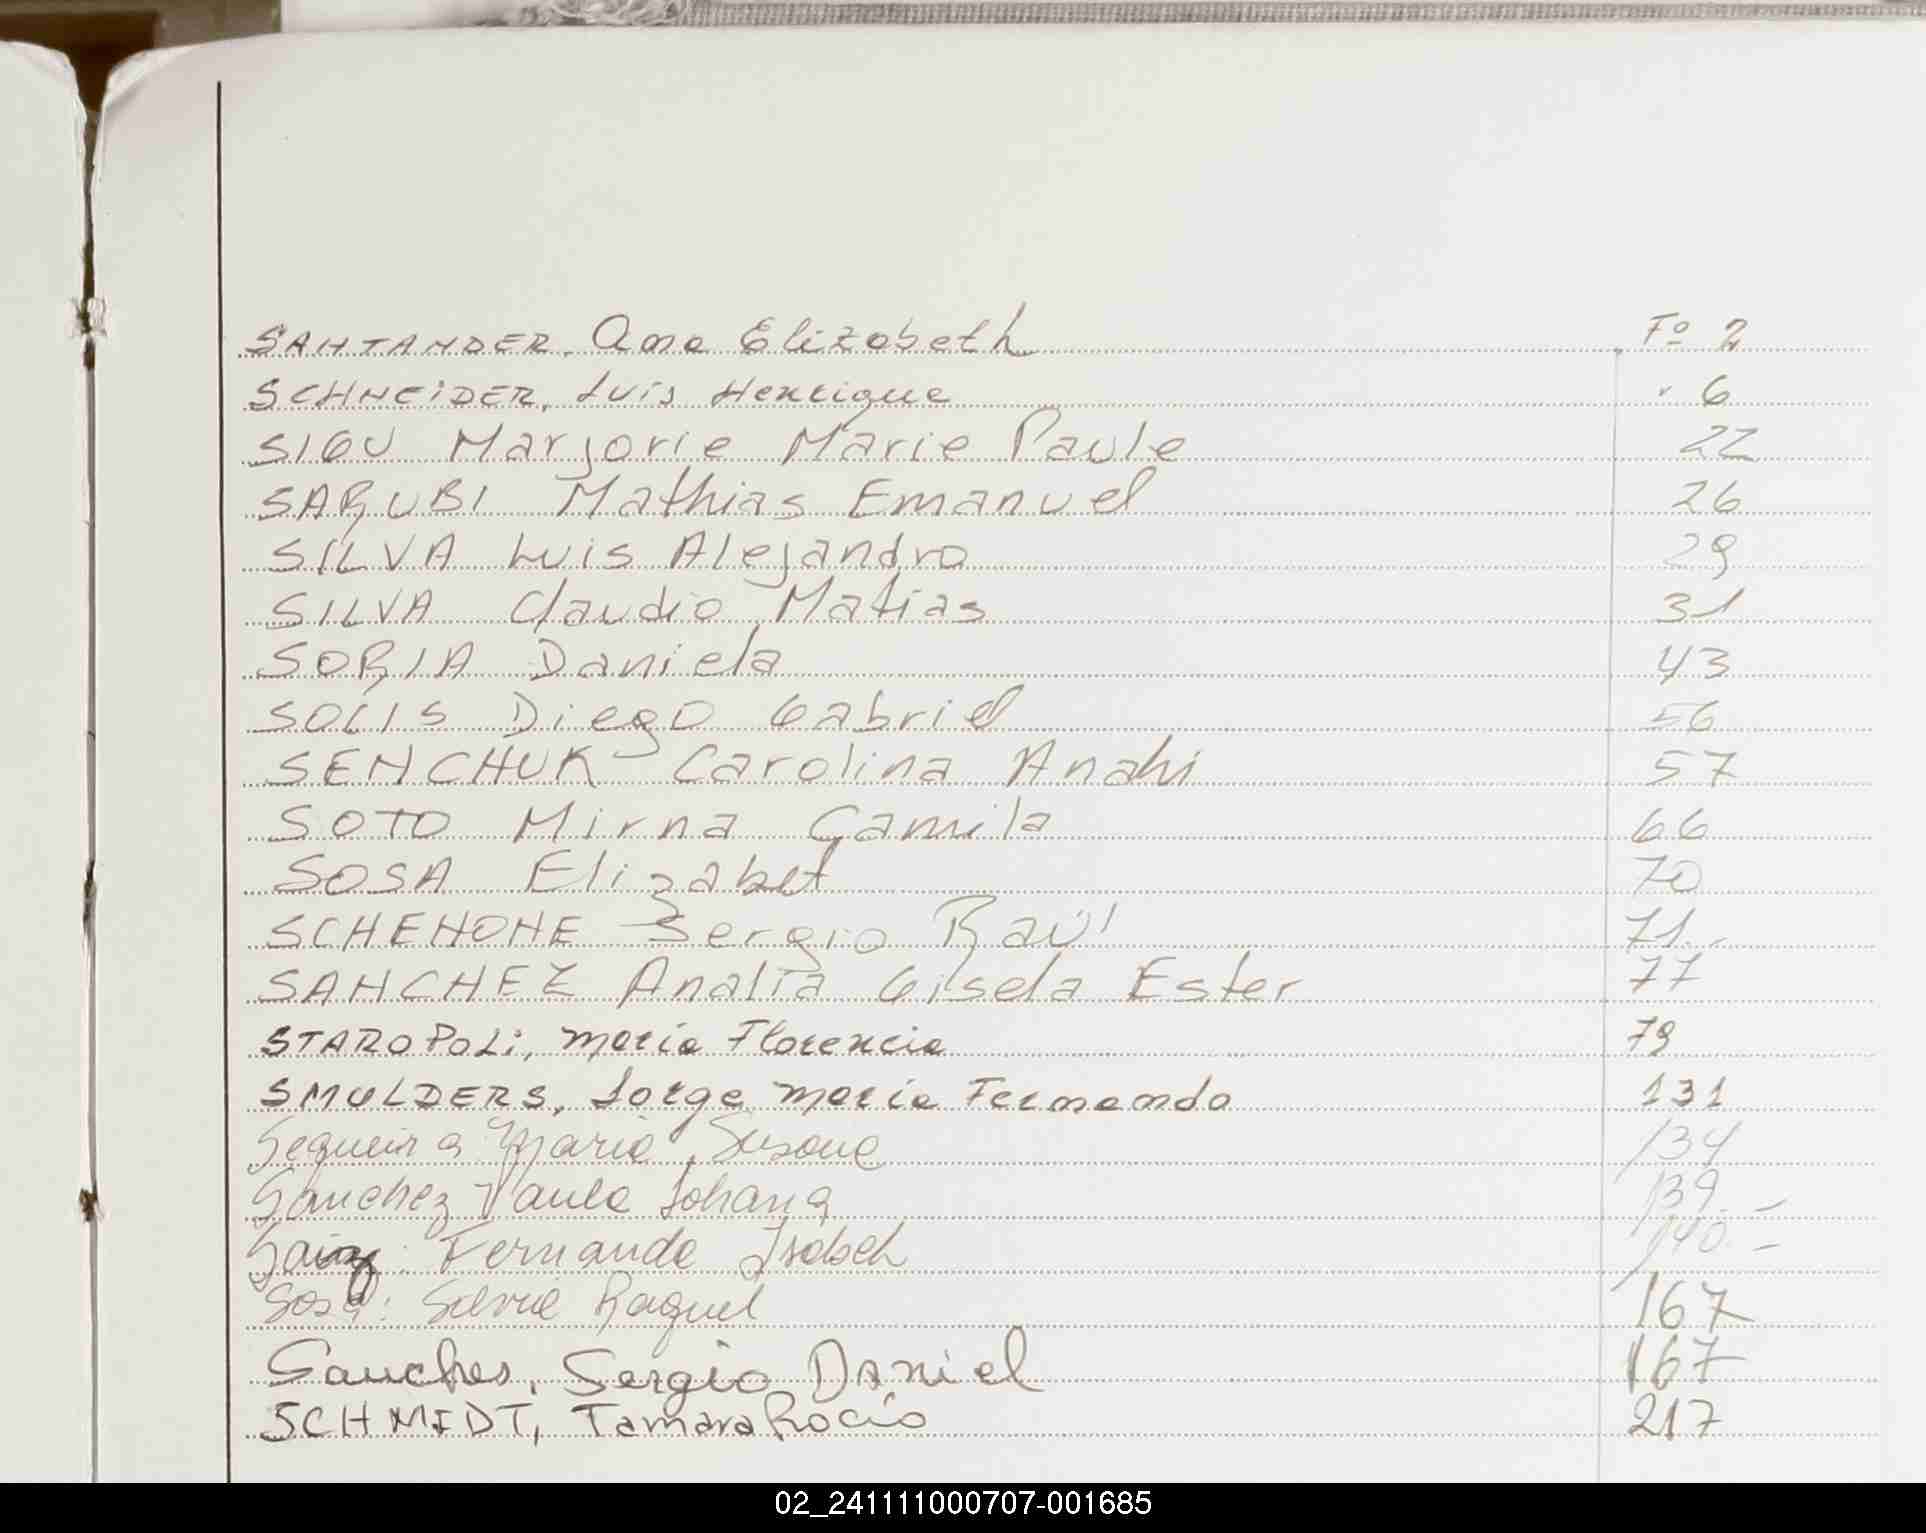 SANTANDER, Ana Elizabeth Fº 2
SCHNEIDER, Luis Henrique " 6
SIGU Marjorie Marie Paule 22
SARUBI Mathias Emanuel 26
SILVA Luis Alejandro 29
SILVA Claudio Matias 31
SORIA Daniela 43
SOLIS Diego Gabriel 56
SENCHUK Carolina Anahi 57
SOTO Mirna Camila 66
SOSA Elizabet 70
SCHENONE Sergio Raúl 71
SANCHEZ Analia Gisela Ester 77
STAROPOLI, María Florencia 79
SMULDERS, Jorge María Fernando 131
Sequeira Maria Susana 134
Sanchez Paula Johana 139.-
Sainz: Fernanda Isabel 140.-
Sosa: Silvia Raquel 167
Sanches, Sergio Daniel 167
SCHMIDT, Tamara Rocío 217
02_241111000707-001685